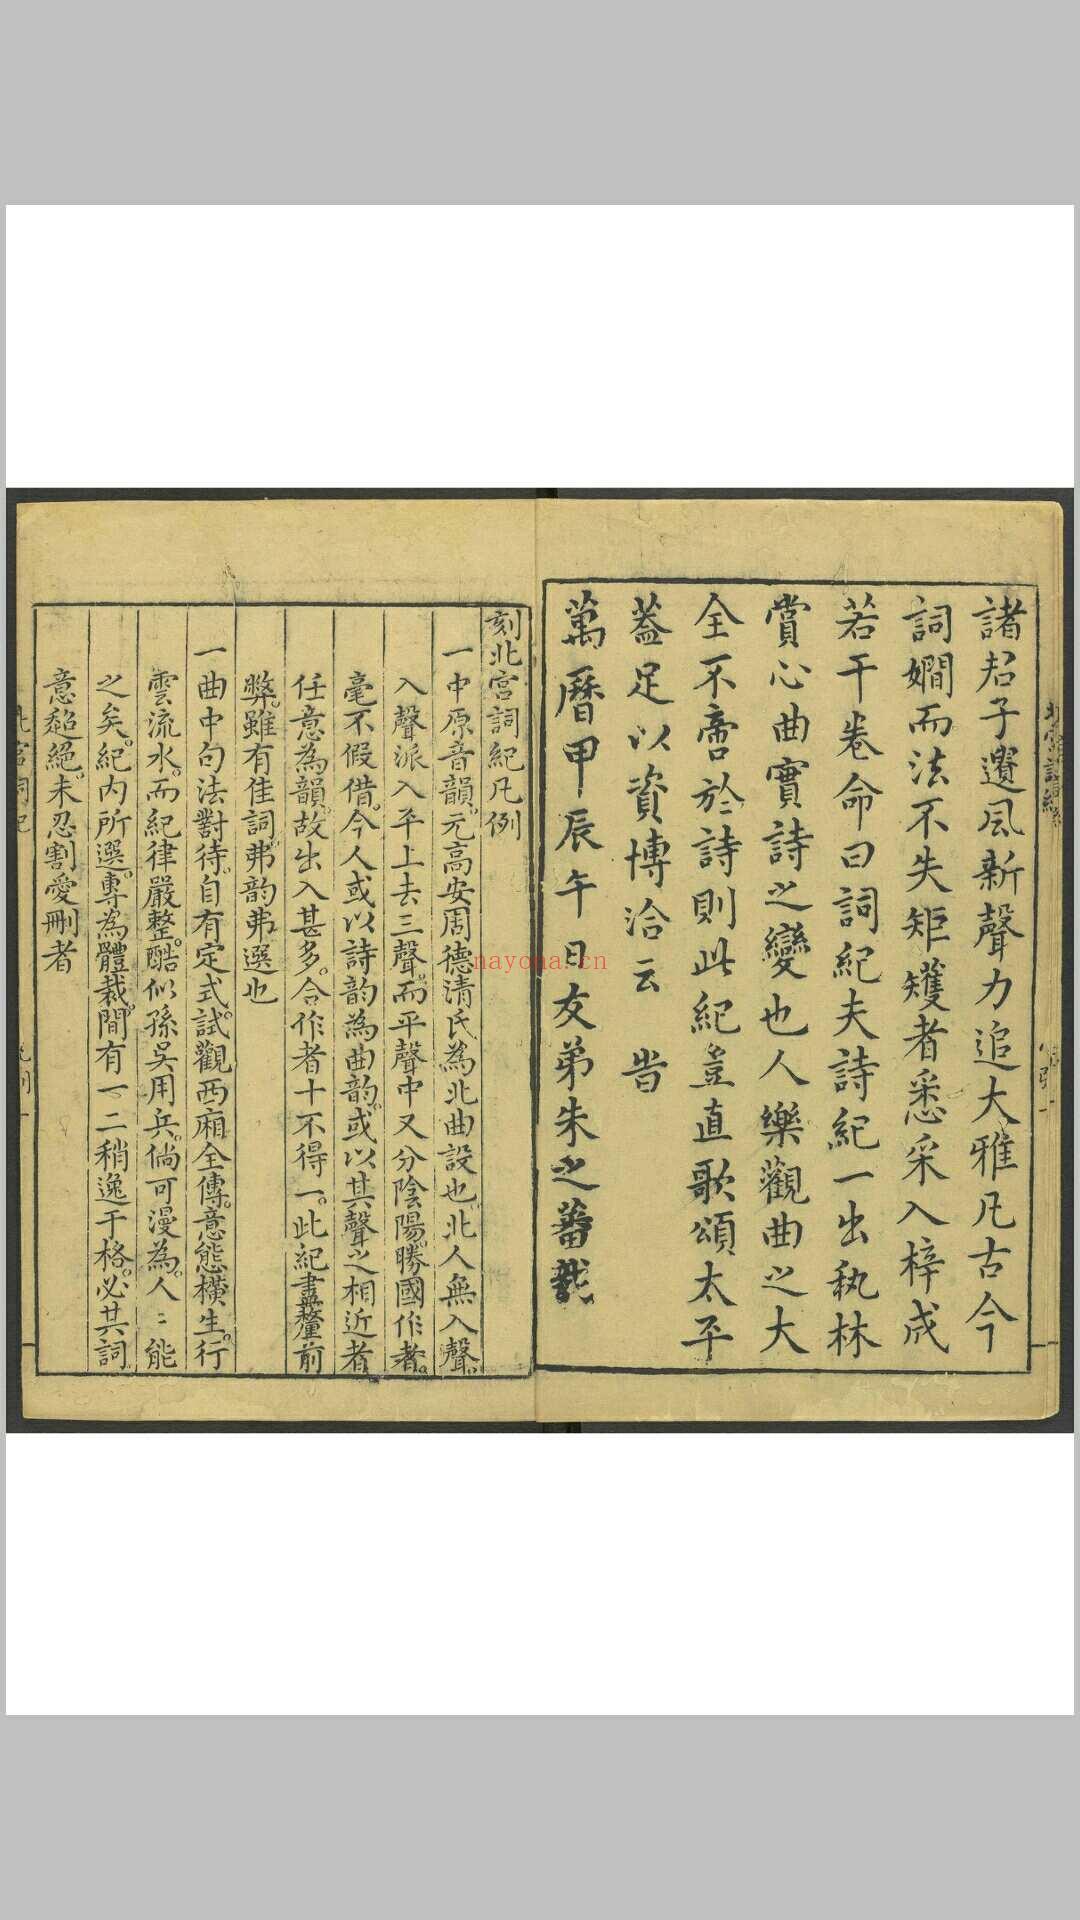 諸君子遺風新聲力追大雅凡古今
詞嫺而法不失矩矱者悉采入梓成
若干卷命曰詞紀夫詩紀一出秇林
賞心曲實詩之變也人樂觀曲之大
全不啻於詩則此紀豈直歌頌太平
蓋足以資博洽云 旹
萬曆甲辰午日友弟朱之蕃
刻北宮詞紀凡例
一中原音韻。元高安周德清氏為北曲設也。北人無入聲。
入聲派入平上去三聲。而平聲中又分陰陽。勝國作者。
毫不假借。今人或以詩韵為曲韵。或以其聲之相近者
任意為韻。故出入甚多。合作者十不得一。此紀盡釐前
弊。雖有佳詞。弗韵弗選也
一曲中句法對待。自有定式。試觀西廂全傳。意態橫生。行
雲流水。而紀律嚴整。酷似孫吳用兵。倘可漫為。人〻能
之矣。紀內所選。專為體裁。間有一二稍逸于格。必其詞
意超絕。未忍割愛刪者
nayona.cn